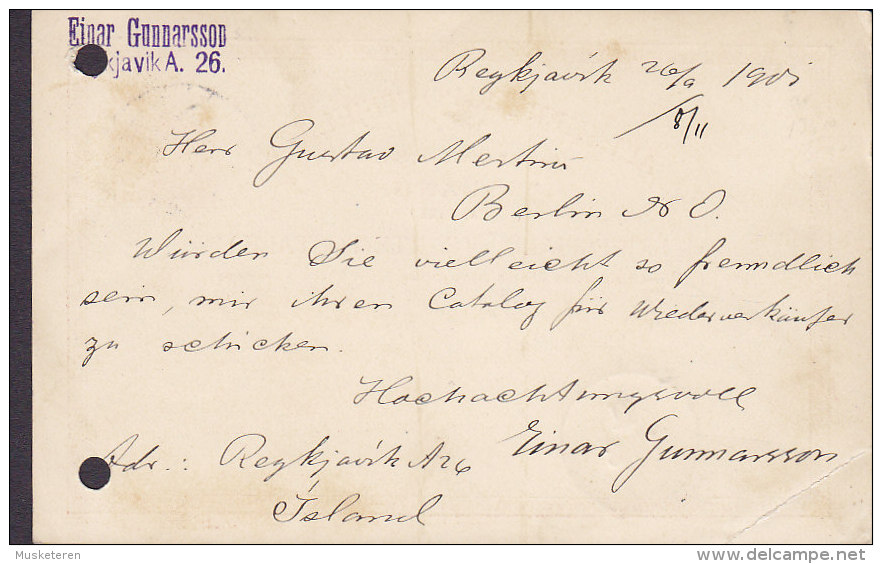 Einar Gunnarsson
kjavik A. 26.
Reykjavík 26/9 1901
8/11
Herr Gustav
Berlin N O.
Würden Sie vielleicht so freundlich
sein, mir ihren Catalog für Wiederverkäufer
zu schicken.
Hochachtungsvoll
Einar Gunnarsson
Adr.: Reykjavík A 26
Ísland
Musketeren
delcampe.net